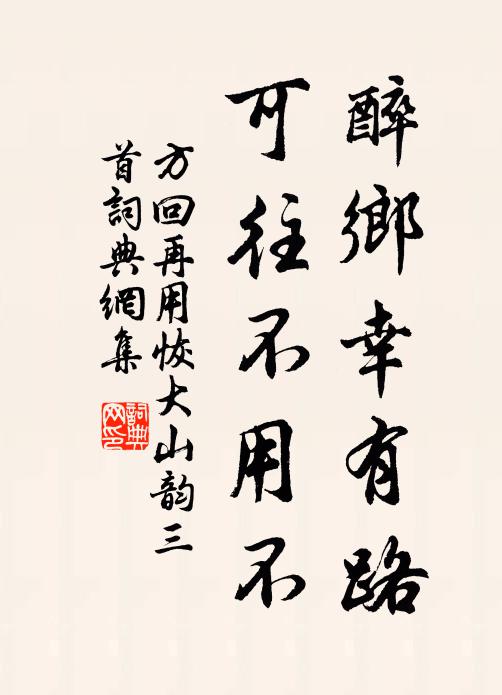 醉鄉幸有路
可往不用不
方回再用恢大山韵三
首詞典網集
詞典网印